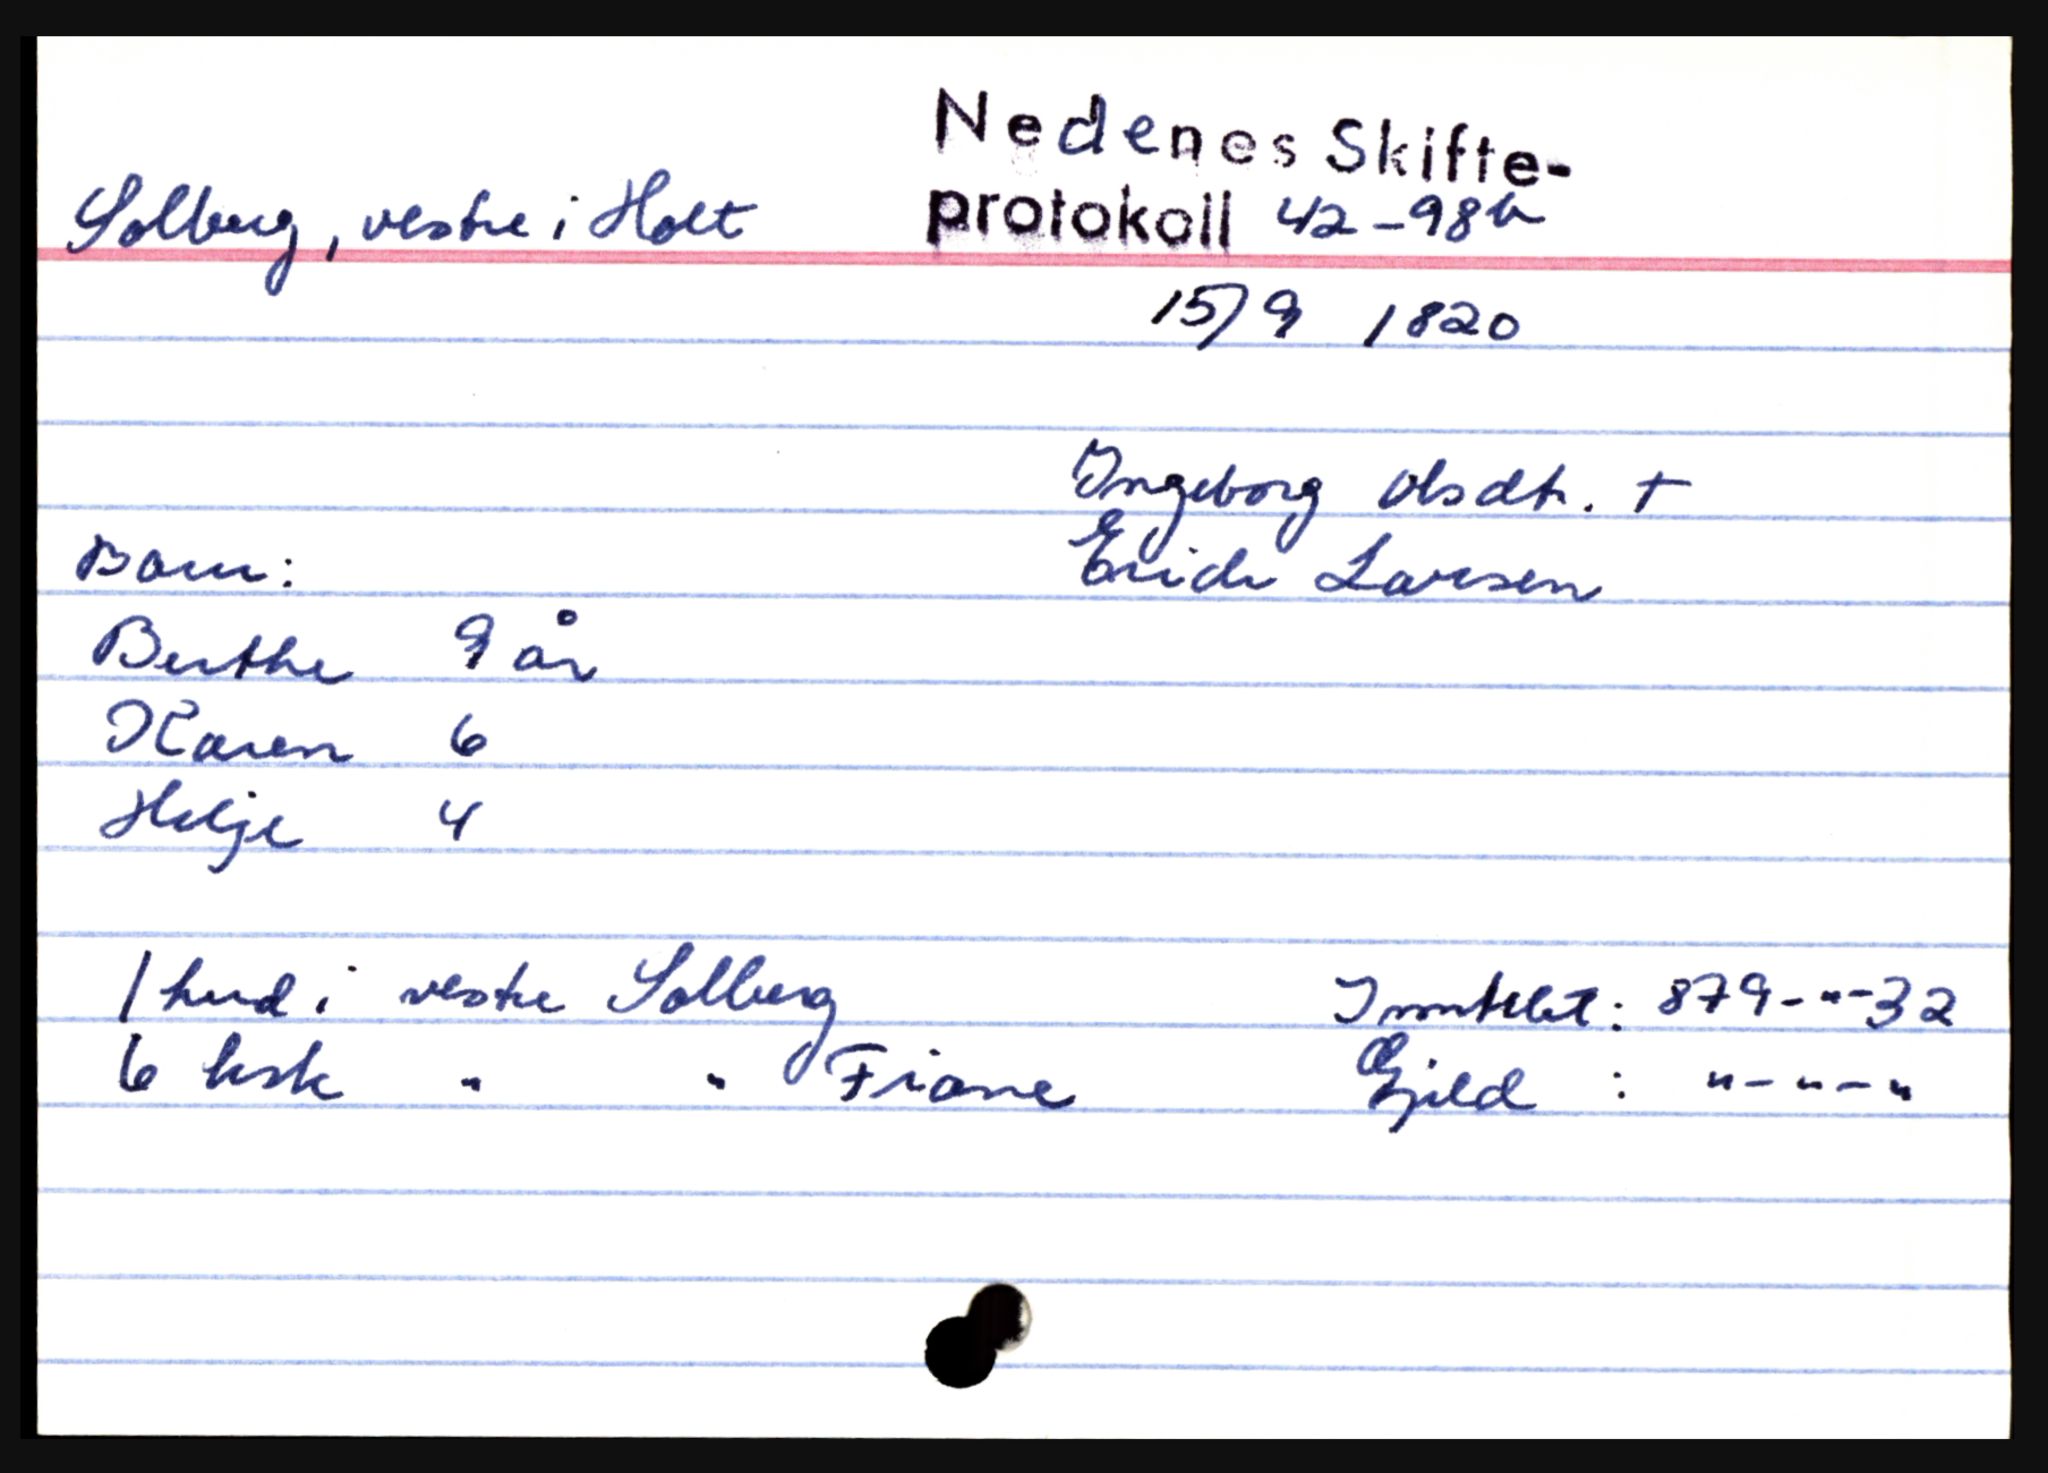 Nedenes Skifte-
Solberg, vestre i Holt protokoll 42-98b
15/9 1820
Ingeborg Olsdtr. †
Barn: Erich Larsen
Berthe 9 år
Karen 6
Helje 4
1 hud i vestre Solberg Inntekt: 879-"-32
6 ksk " " Fiane Gjeld : "-"-"